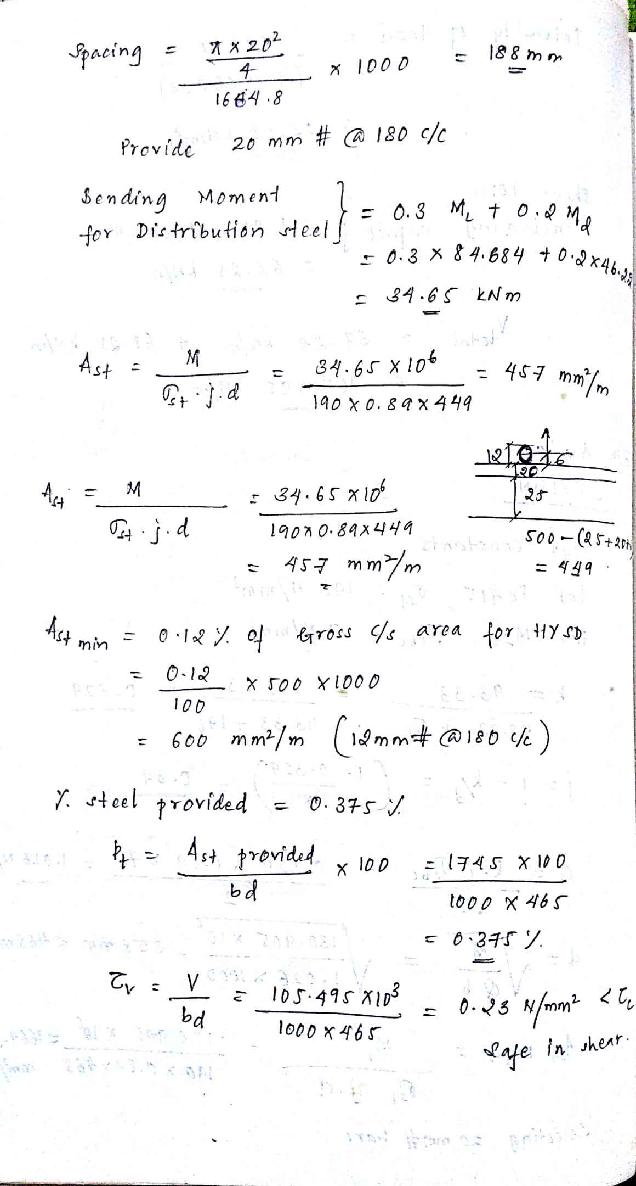 Spacing = π × 20² / 4 / 1664.8 × 1000 = 188 mm
Provide 20 mm # @ 180 c/c
Bending Moment for Distribution steel } = 0.3 M_L + 0.2 M_d
= 0.3 × 84.684 + 0.2 × 46.25
= 34.65 kNm
Ast = M / σst · j · d = 34.65 × 10⁶ / 190 × 0.89 × 449 = 457 mm²/m
12 6
20
25
500 - (25+20+
= 449
Ast = M / σst · j · d = 34.65 × 10⁶ / 190 × 0.89 × 449
= 457 mm²/m
Ast min = 0.12 % of Gross c/s area for HYSD
= 0.12 / 100 × 500 × 1000
= 600 mm²/m (12mm # @ 180 c/c)
% steel provided = 0.375 %
Pt = Ast provided / bd × 100 = 1745 × 100 / 1000 × 465
= 0.375 %
τv = V / bd = 105.495 × 10³ / 1000 × 465 = 0.23 N/mm² < τc
Safe in shear.